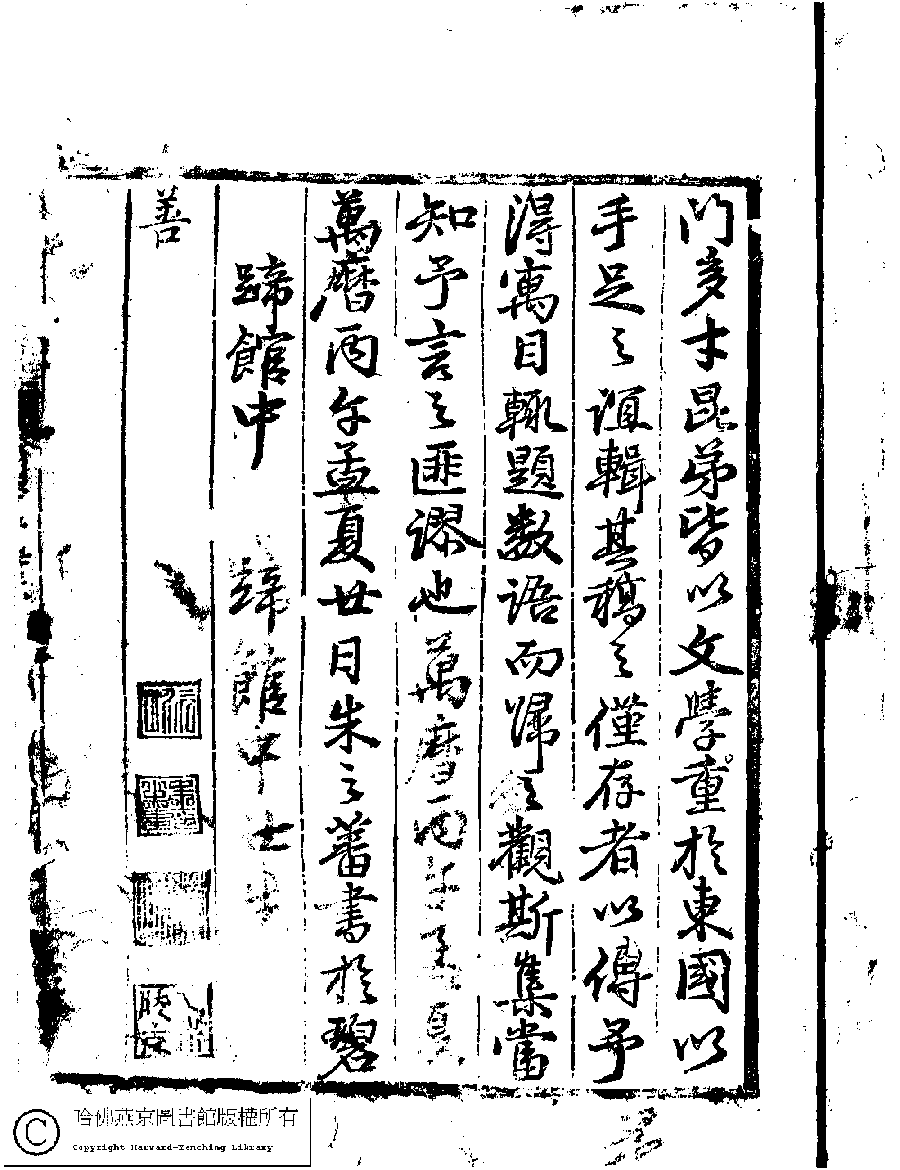 門多才昆弟皆以文學重於東國以
手足之誼輯其稿之僅存者以傳予
得寓目輒題數語而歸之觀斯集當
知予言之匪謬也萬曆丙午孟夏
萬曆丙午孟夏廿日朱之蕃書於碧
蹄館中 蹄館中
善
哈佛燕京圖書館版權所有
Copyright Harvard-Yenching Library